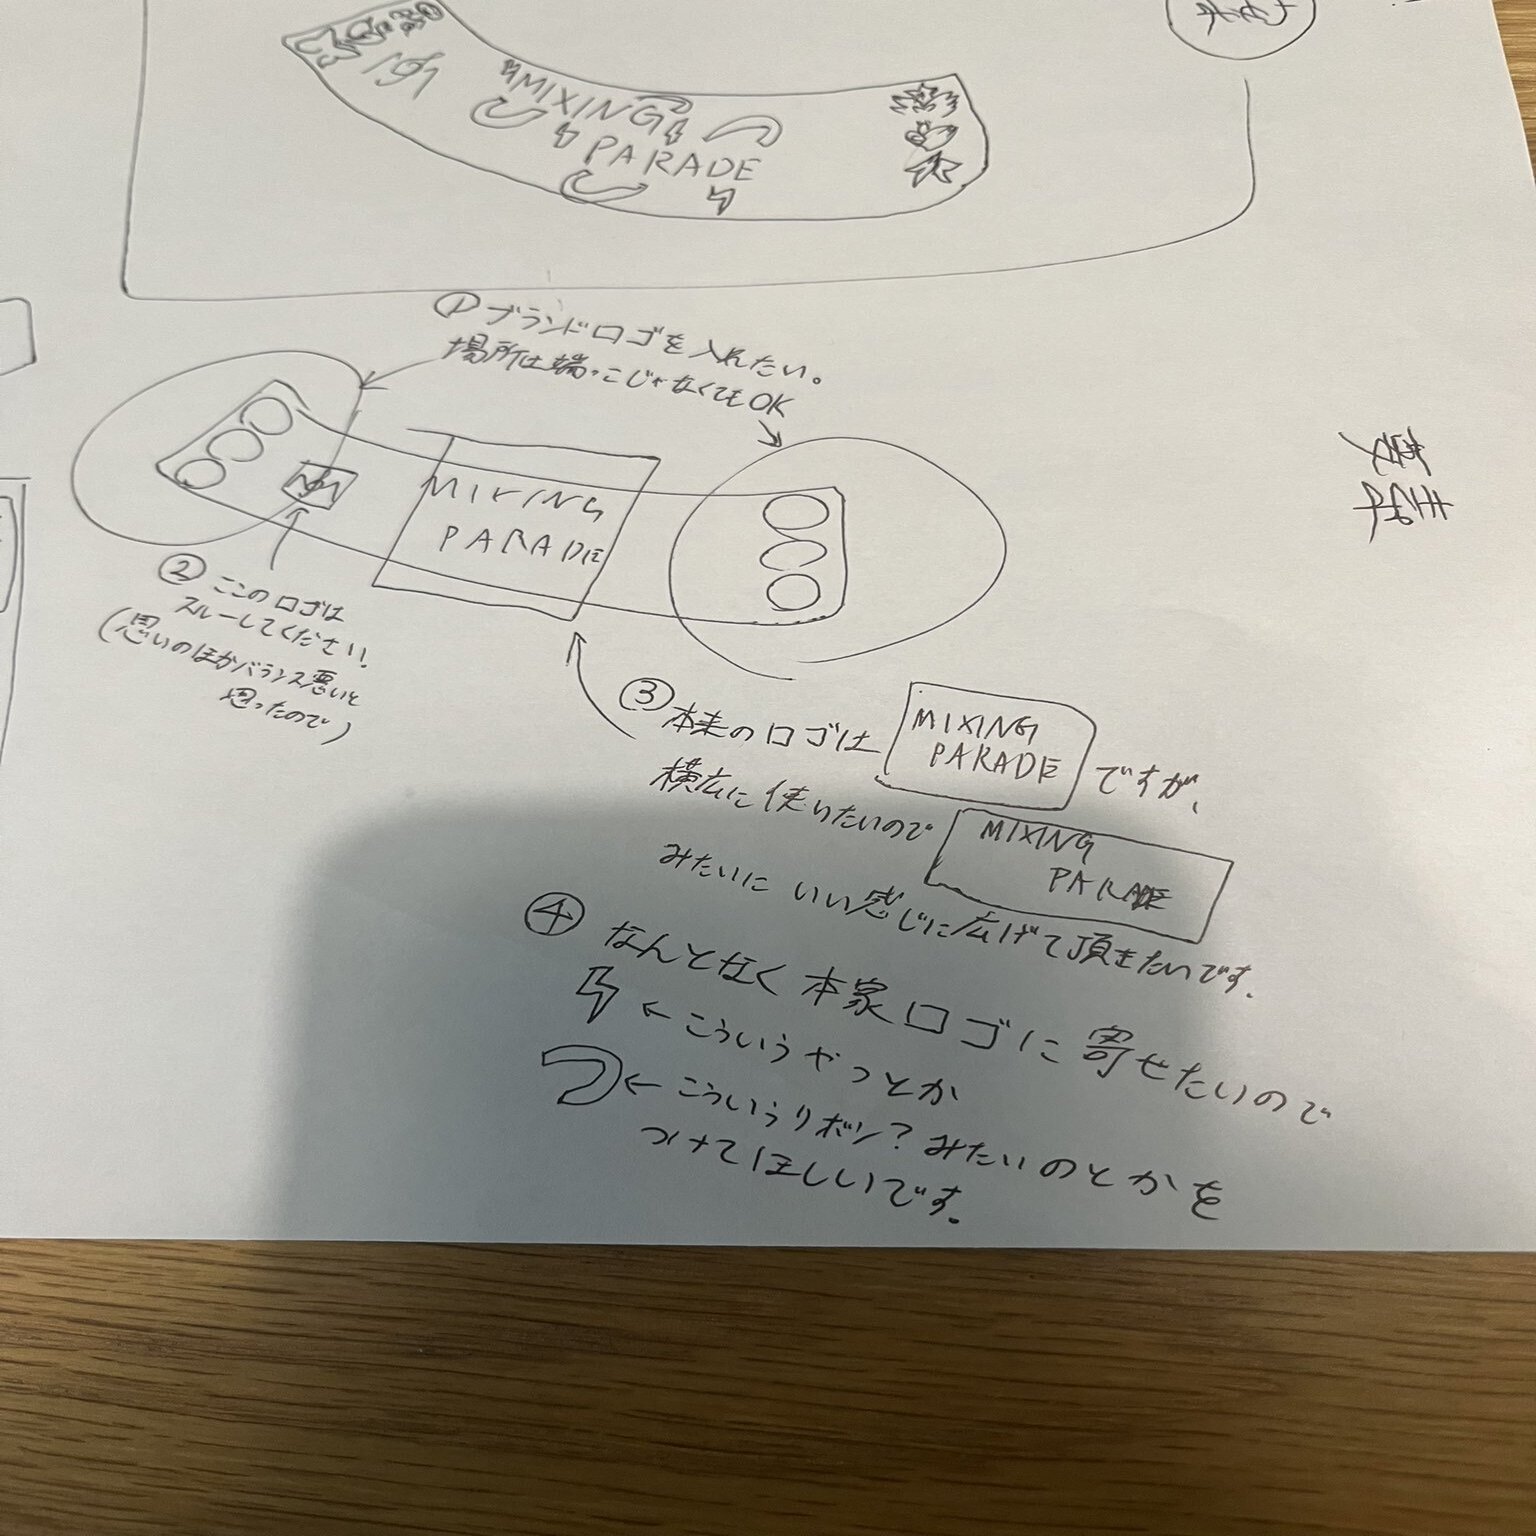 MIXING
PARADE
①ブランドロゴを入れたい。
場所は端っこじゃなくてもOK
MIXING
PARADE
②ここのロゴは
スルーしてください!
(思いのほかバランス悪いと
思ったので)
③本来のロゴは MIXING PARADE ですが、
横広に使いたいので MIXING PARADE
みたいにいい感じに広げて頂きたいです。
④なんとなく本家ロゴに寄せたいので
←こういうやつとか
←こういうリボン?みたいのとかを
つけてほしいです。